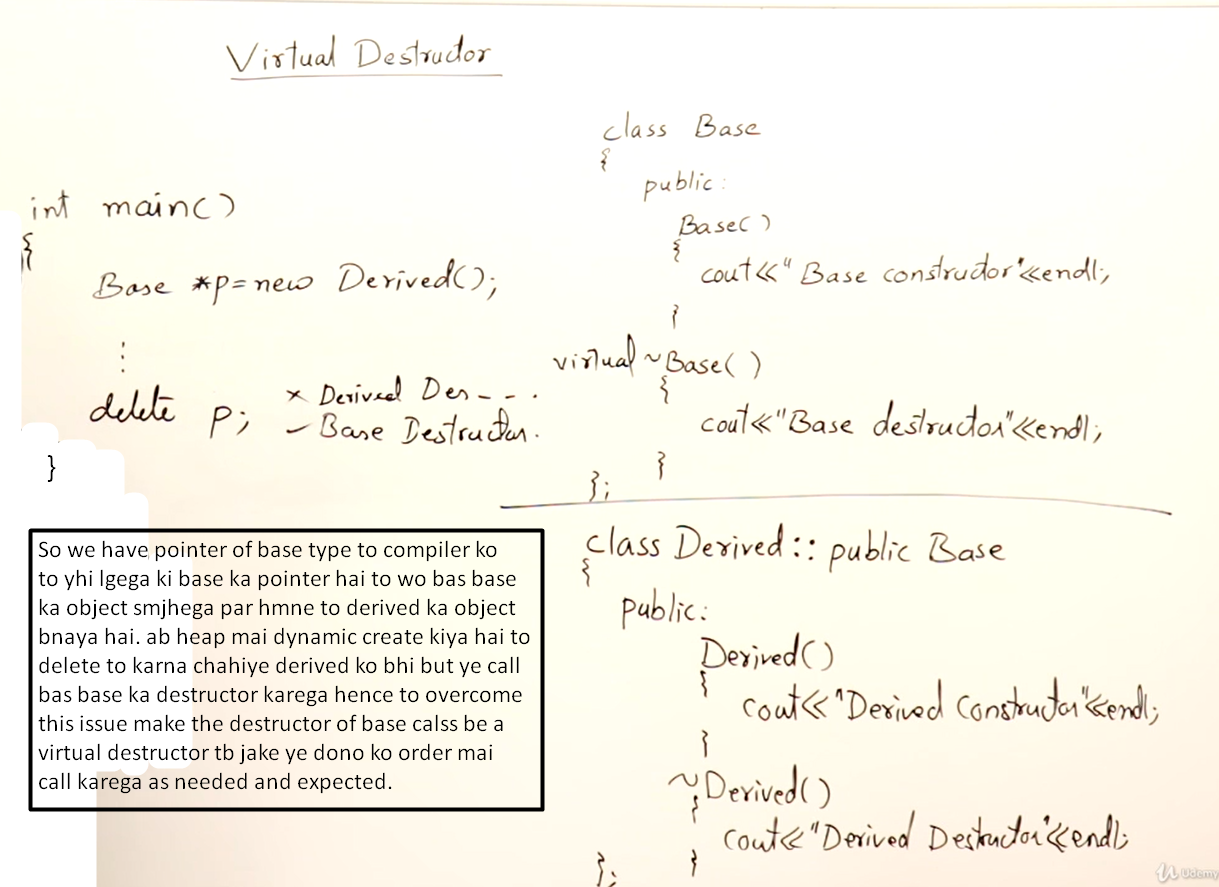 Virtual Destructor
int main()
{
Base *p=new Derived();
⋮
delete p; × Derived Des - - .
– Base Destructor.
}
So we have pointer of base type to compiler ko
to yhi lgega ki base ka pointer hai to wo bas base
ka object smjhega par hmne to derived ka object
bnaya hai. ab heap mai dynamic create kiya hai to
delete to karna chahiye derived ko bhi but ye call
bas base ka destructor karega hence to overcome
this issue make the destructor of base calss be a
virtual destructor tb jake ye dono ko order mai
call karega as needed and expected.
class Base
{
public:
Base()
{
cout<<"Base constructor"<<endl;
}
virtual ~Base()
{
cout<<"Base destructor"<<endl;
}
};
class Derived:: public Base
{
public:
Derived()
{
cout<<"Derived Constructor"<<endl;
}
~Derived()
{
cout<<"Derived Destructor"<<endl;
}
};
Udemy